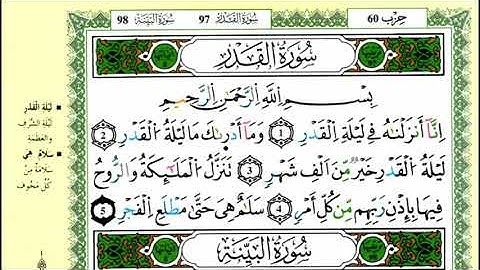 حزب 60 سُورَةُ القَدْر 97 سُورَةُ البَيِّنَة 98
سُورَةُ الْقَدْرِ
بِسْمِ اللَّهِ الرَّحْمَٰنِ الرَّحِيمِ
إِنَّا أَنزَلْنَٰهُ فِي لَيْلَةِ الْقَدْرِ 1 وَمَا أَدْرَىٰكَ مَا لَيْلَةُ الْقَدْرِ 2
لَيْلَةُ الْقَدْرِ خَيْرٌ مِّنْ أَلْفِ شَهْرٍ 3 تَنَزَّلُ الْمَلَٰٓئِكَةُ وَالرُّوحُ
فِيهَا بِإِذْنِ رَبِّهِم مِّن كُلِّ أَمْرٍ 4 سَلَٰمٌ هِيَ حَتَّىٰ مَطْلَعِ الْفَجْرِ 5
سُورَةُ الْبَيِّنَةِ
■ لَيْلَةِ الْقَدْرِ
لَيْلَةِ الشَّرَفِ
وَالْعَظَمَةِ
■ سَلَامٌ هِيَ
سَلَامَةٌ مِنْ
كُلِّ مَخُوفٍ